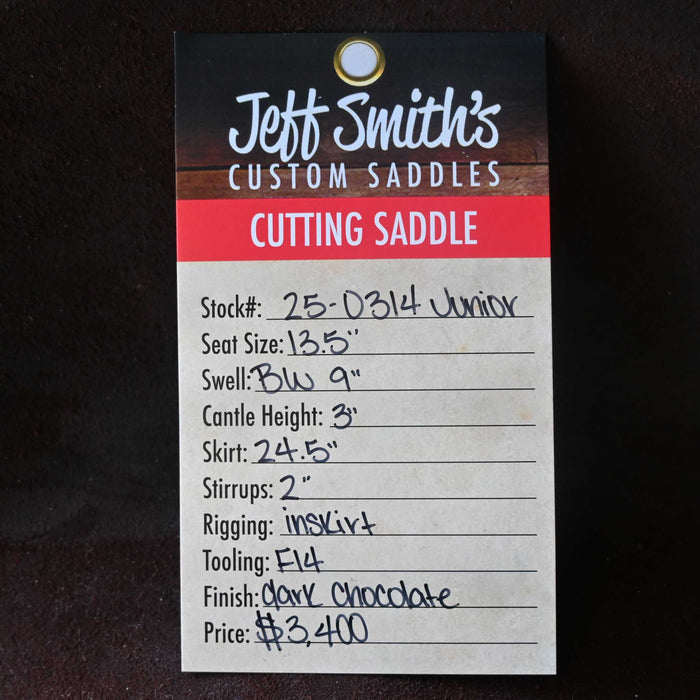 Jeff Smith's
CUSTOM SADDLES
CUTTING SADDLE
Stock#: 25-0314 Junior
Seat Size: 13.5"
Swell: BW 9"
Cantle Height: 3"
Skirt: 24.5"
Stirrups: 2"
Rigging: inskirt
Tooling: F14
Finish: dark chocolate
Price: $3,400